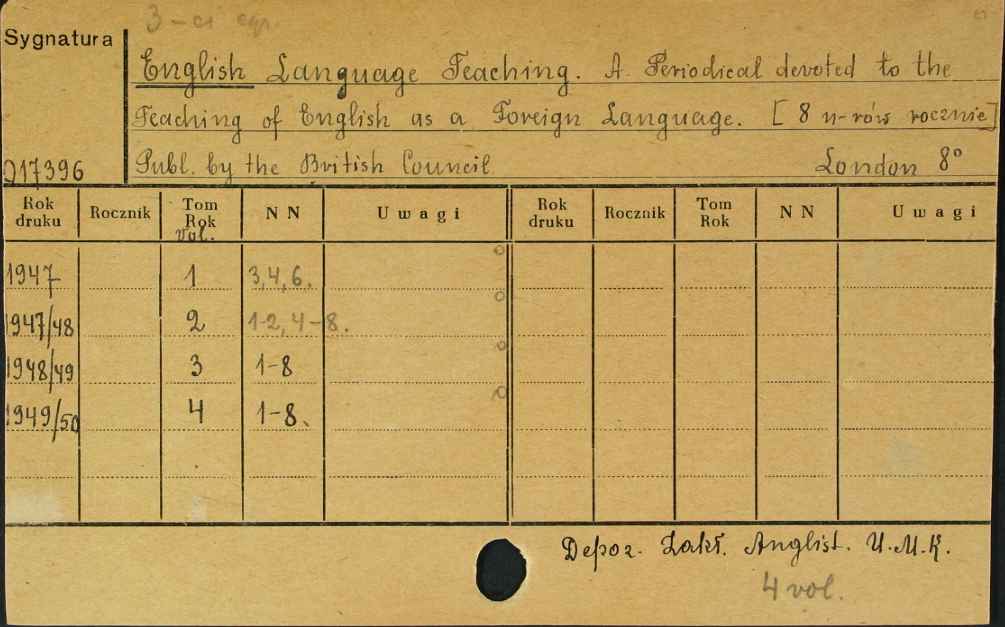 3-ci egz.
Sygnatura
English Language Teaching. A Periodical devoted to the
Teaching of English as a Foreign Language. [8 n-rów rocznie]
017396 Publ. by the British Council London 8°
Rok druku Rocznik Tom Rok N N Uwagi Rok druku Rocznik Tom Rok N N Uwagi
Vol.
1947 1 3,4,6.
1947/48 2 1-2, 4-8.
1948/49 3 1-8
1949/50 4 1-8.
Depoz. Zakł. Anglist. U.M.K.
4 vol.